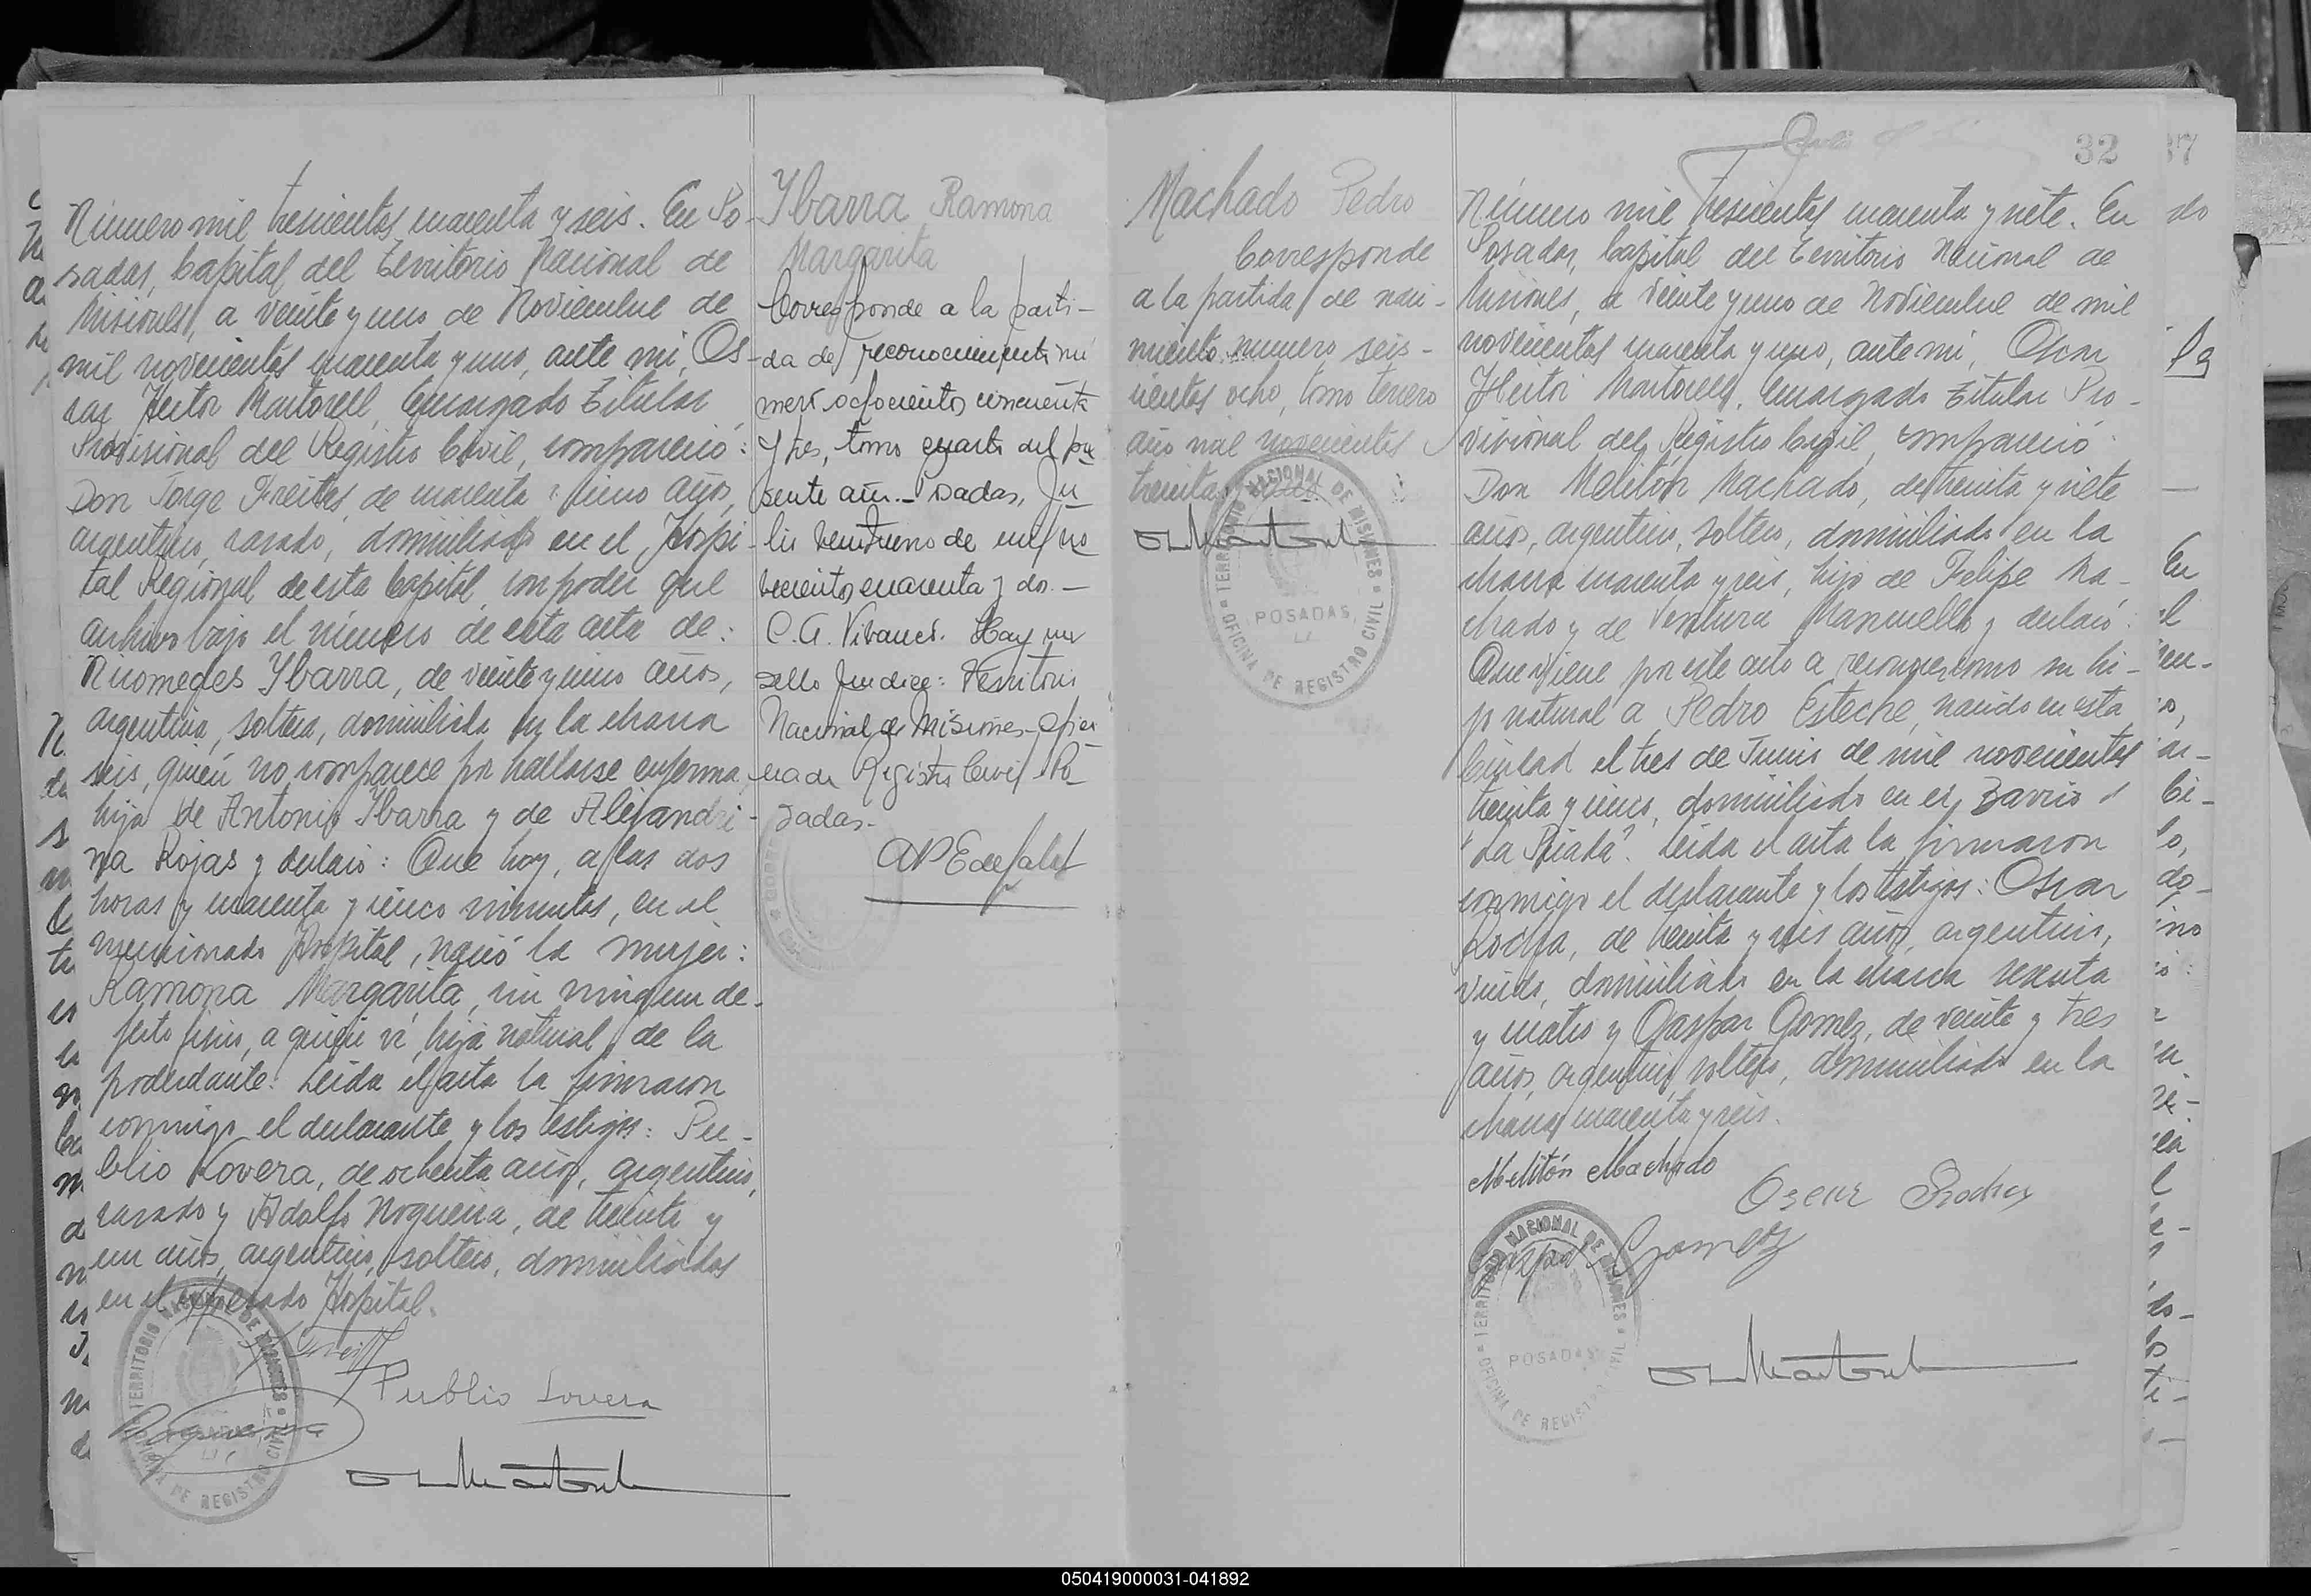 Número mil trescientos cuarenta y seis. En Po-
sadas, Capital del Territorio Nacional de
Misiones, a veinte y uno de Noviembre de
mil novecientos cuarenta y uno, ante mi, Os-
car Hector Martorell, Encargado Titular
Provisional del Registro Civil, compareció:
Don Jorge Freites, de cuarenta y cinco años,
argentino, casado, domiciliado en el Hospi-
tal Regional de esta Capital, con poder que
archivo bajo el número de esta acta de:
Nicomedes Ybarra, de veinte y cinco años,
argentina, soltera, domiciliada en la chacra
seis, quién no comparece por hallarse enferma,
hija de Antonio Ybarra y de Alejandri-
na Rojas y declaró: Que hoy, a las dos
horas y cuarenta y cinco minutos, en el
mencionado Hospital, nació la mujer:
Ramona Margarita, sin ningun de-
fecto físico, a quien ví, hija natural de la
poderdante. Leida el acta la firmaron
conmigo el declarante y los testigos: Pu-
blio Lovera, de ochenta años, argentino,
casado y Adolfo Nogueira, de treinta y
un años, argentino, soltero, domiciliados
en el expresado Hospital.
Publio Lovera
TERRITORIO NACIONAL DE MISIONES
OFICINA DE REGISTRO CIVIL
POSADAS
Ybarra Ramona
Margarita
Corresponde a la parti-
da de reconocimiento nú
mero ochocientos cincuenta
y tres, tomo cuarto del pre
sente año.- Posadas, Ju
lio veintiuno de mil no
vecientos cuarenta y dos.-
C. A. Vivanco. Hay un
sello que dice: Territorio
Nacional de Misiones-Ofici
na de Registro Civil Po
sadas.-
Machado Pedro
Corresponde
a la partida de naci-
miento numero seis-
cientos ocho, tomo tercero
año mil novecientos
treinta y
TERRITORIO NACIONAL DE MISIONES
OFICINA DE REGISTRO CIVIL
POSADAS
32
Número mil trescientos cuarenta y siete. En
Posadas, Capital del Territorio Nacional de
Misiones, a veinte y uno de Noviembre de mil
novecientos cuarenta y uno, ante mi, Oscar
Hector Martorell, Encargado Titular Pro-
visional del Registro Civil, compareció
Don Melitón Machado, de treinta y siete
años, argentino, soltero, domiciliado en la
chacra cuarenta y seis, hijo de Felipe Ma-
chado y de Ventura Mancuello y declaró:
Que viene por este acto a reconocer como su hi-
jo natural a Pedro Esteche, nacido en esta
Ciudad el tres de Junio de mil novecientos
treinta y cinco, domiciliado en el Barrio
"La Picada". Leida el acta la firmaron
conmigo el declarante y los testigos: Oscar
Rocha, de treinta y seis años, argentino,
viudo, domiciliado en la chacra sesenta
y cuatro y Gaspar Gomez, de veinte y tres
años, argentino, soltero, domiciliado en la
chacra cuarenta y seis.
Melitón Machado
Oscar Rocha
Gaspar Gomez
TERRITORIO NACIONAL DE MISIONES
OFICINA DE REGISTRO CIVIL
POSADAS
050419000031-041892